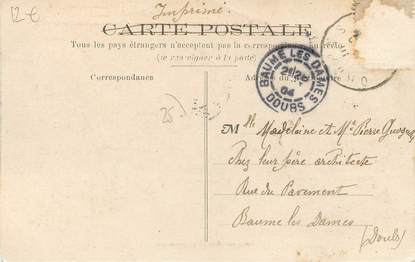 12 €
Imprimé
CARTE POSTALE
Tous les pays étrangers n'acceptent pas la correspondance au recto
(se renseigner à la poste)
Correspondance
BAUME LES DAMES
04
DOUBS
25
Mlle Madeleine et Mr Pierre
Chez leur père architecte
Rue du Pavement
Baume les Dames
(Doubs)